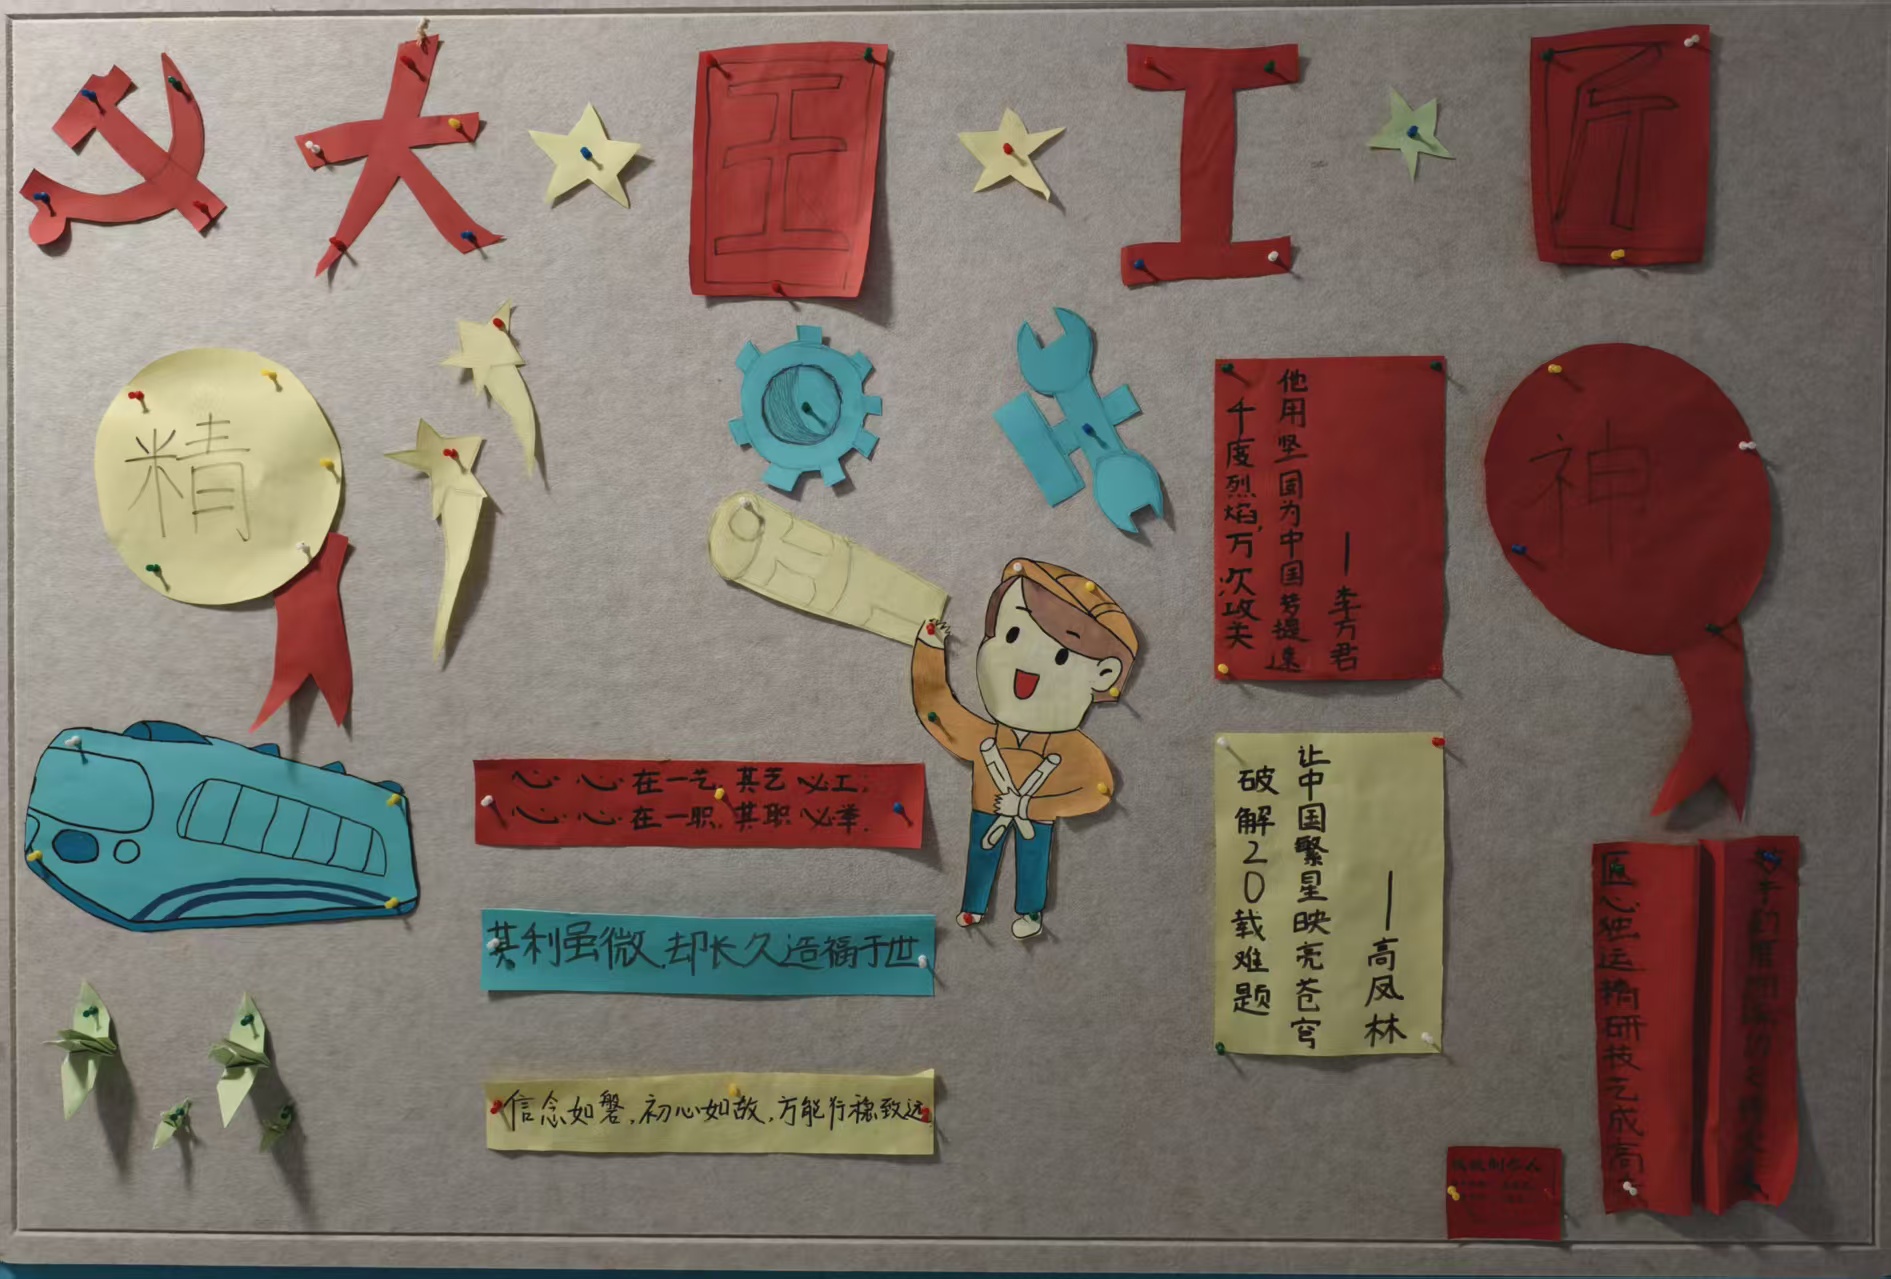 大国工匠
精神
千度烈焰,万次攻关
他用坚固为中国梦提速
——李万君
心心在一艺,其艺必工;
心心在一职,其职必举.
破解20载难题
让中国繁星映亮苍穹
——高凤林
其利虽微,却长久造福于世
信念如磐,初心如故,方能行稳致远
匠心独运精研技艺成高
制作人